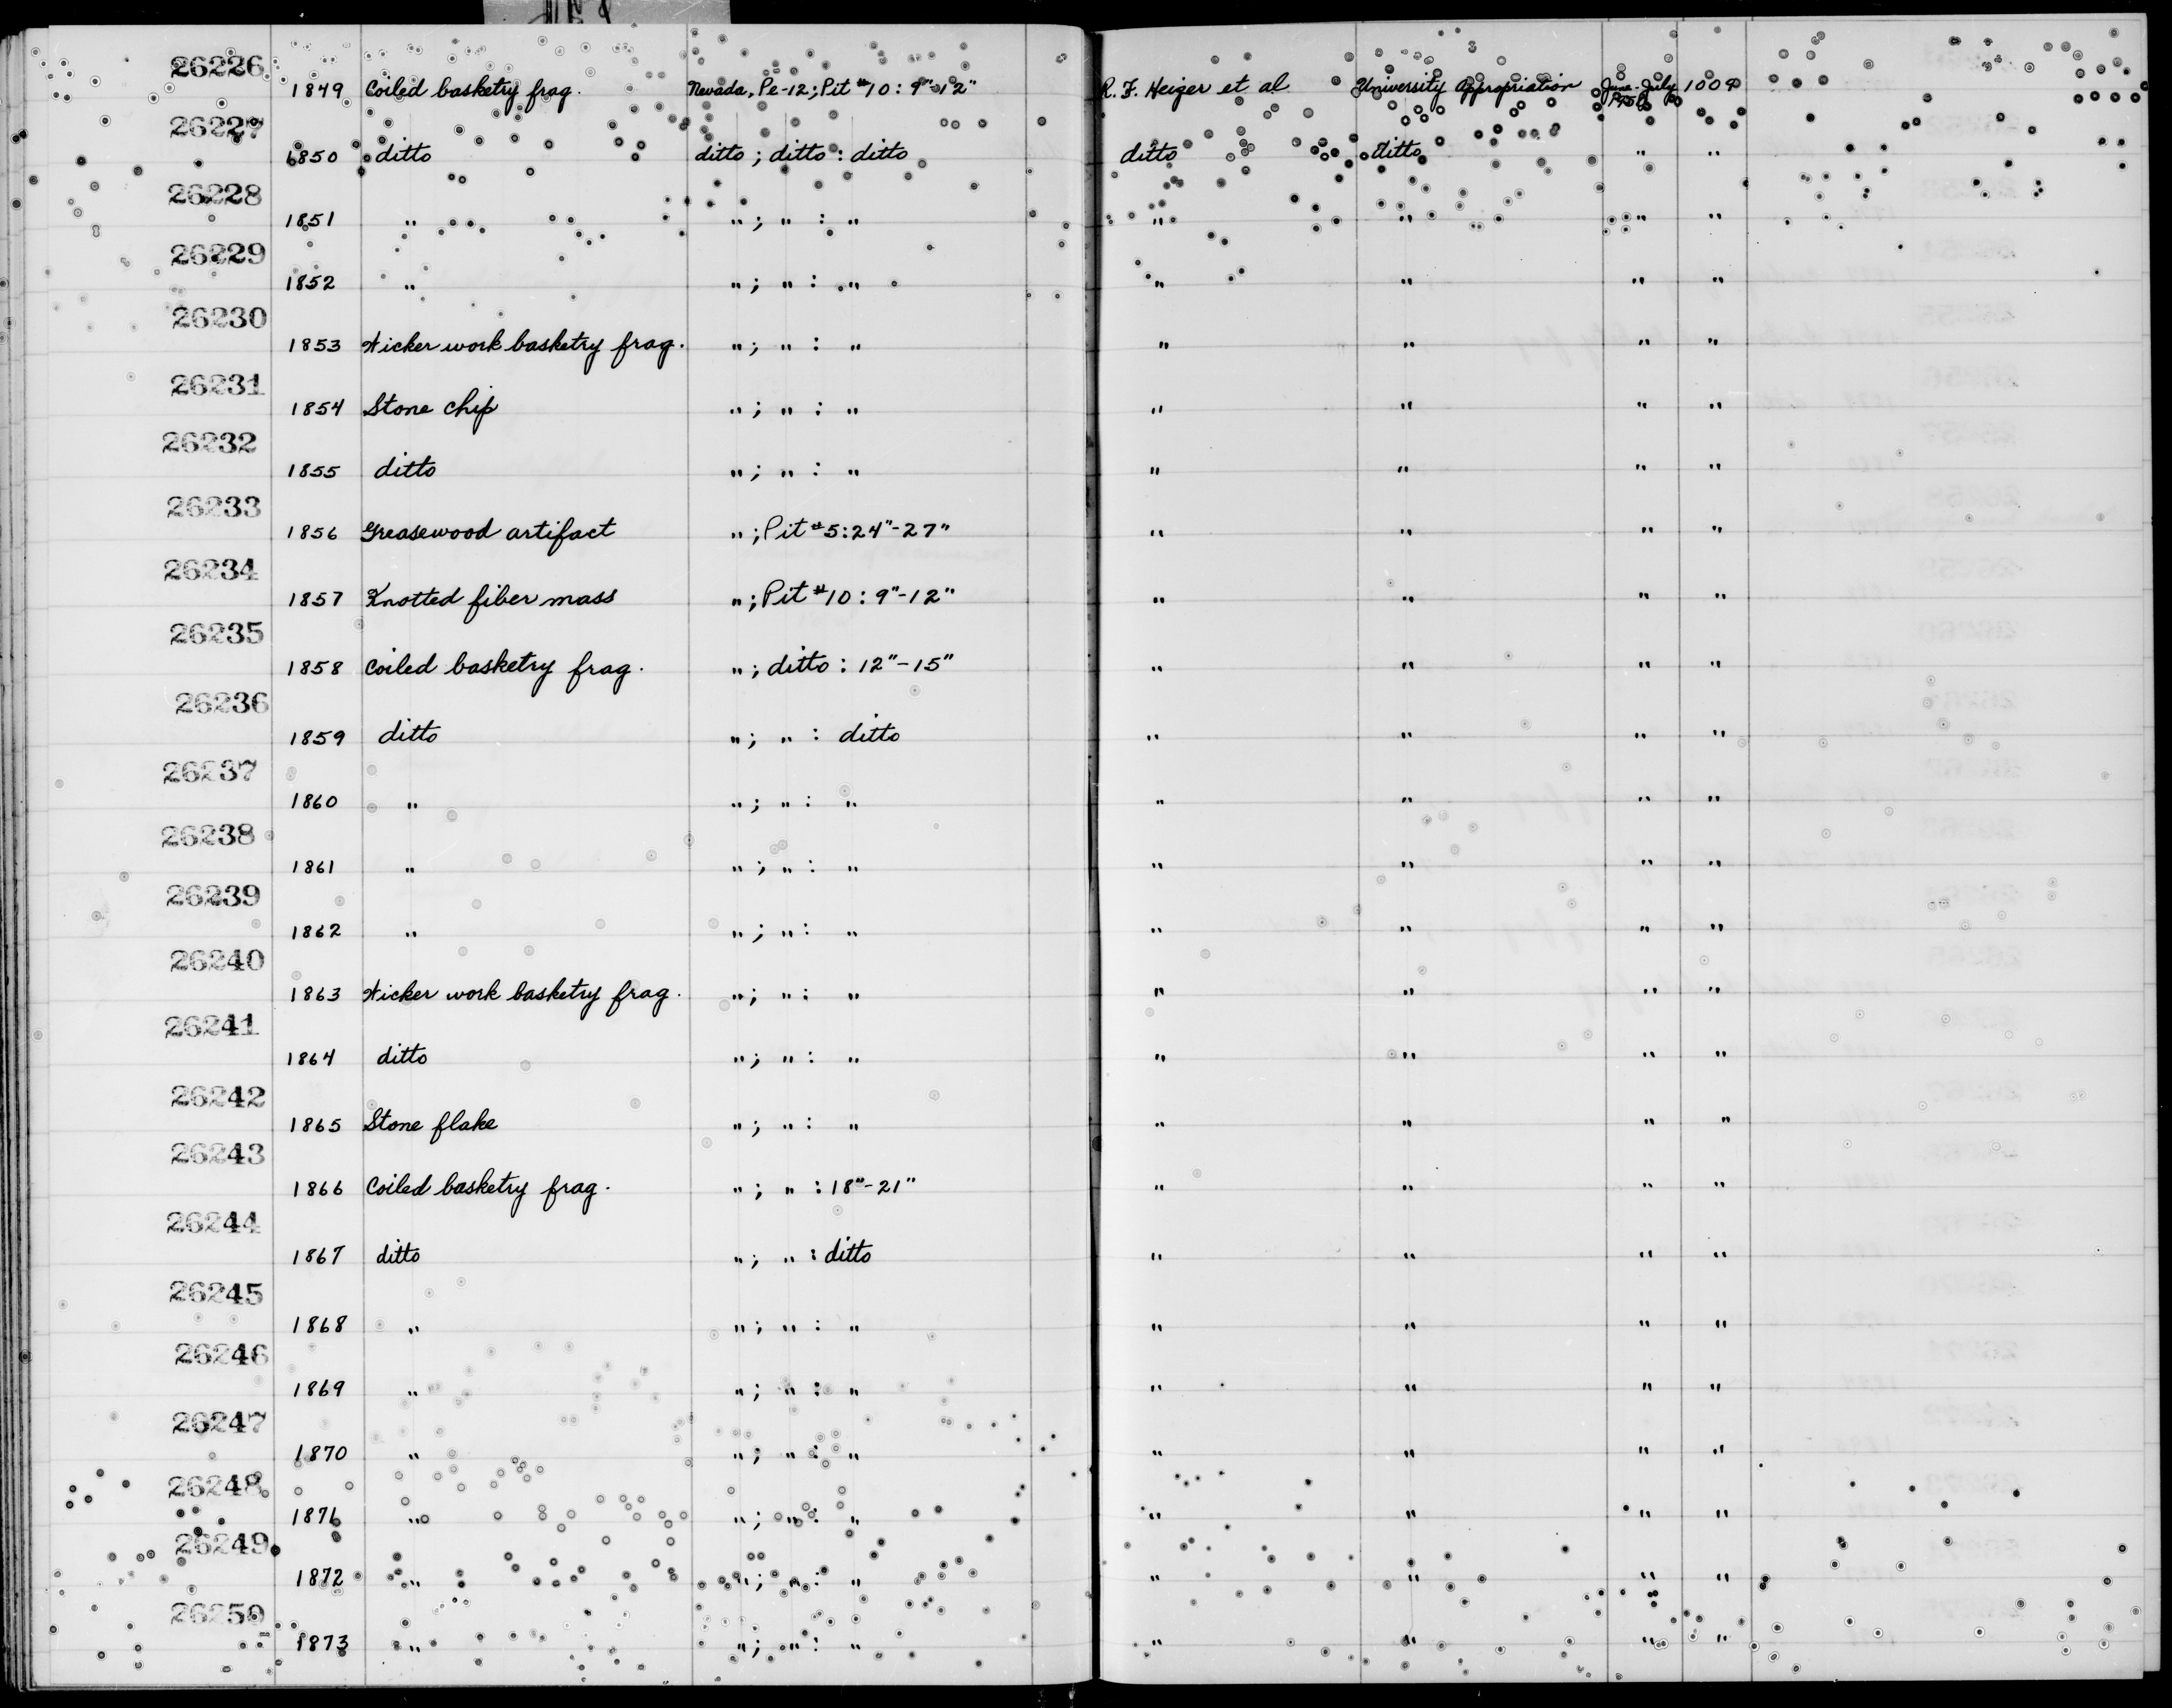 26226
1849 Coiled basketry frag. Nevada, Pe-12; Pit #10: 9"-12" R. F. Heizer et al University Appropriation June-July 1950 1009
26227
1850 ditto ditto; ditto: ditto ditto ditto " "
26228
1851 " "; ": " " " " "
26229
1852 " "; ": " " " " "
26230
1853 Wicker work basketry frag. "; ": " " " " "
26231
1854 Stone chip "; ": " " " " "
26232
1855 ditto "; ": " " " " "
26233
1856 Greasewood artifact "; Pit #5: 24"-27" " " " "
26234
1857 Knotted fiber mass "; Pit #10: 9"-12" " " " "
26235
1858 Coiled basketry frag. "; ditto: 12"-15" " " " "
26236
1859 ditto "; ": ditto " " " "
26237
1860 " "; ": " " " " "
26238
1861 " "; ": " " " " "
26239
1862 " "; ": " " " " "
26240
1863 Wicker work basketry frag. "; ": " " " " "
26241
1864 ditto "; ": " " " " "
26242
1865 Stone flake "; ": " " " " "
26243
1866 Coiled basketry frag. "; ": 18"-21" " " " "
26244
1867 ditto "; ": ditto " " " "
26245
1868 " "; ": " " " " "
26246
1869 " "; ": " " " " "
26247
1870 " "; ": " " " " "
26248
1871 " "; ": " " " " "
26249
1872 " "; ": " " " " "
26250
1873 " "; ": " " " " "